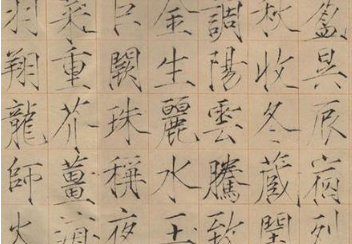 盈昃辰宿列
秋收冬藏閏
調陽雲騰致
金生麗水玉
巨闕珠稱夜
菜重芥薑海
羽翔龍師火